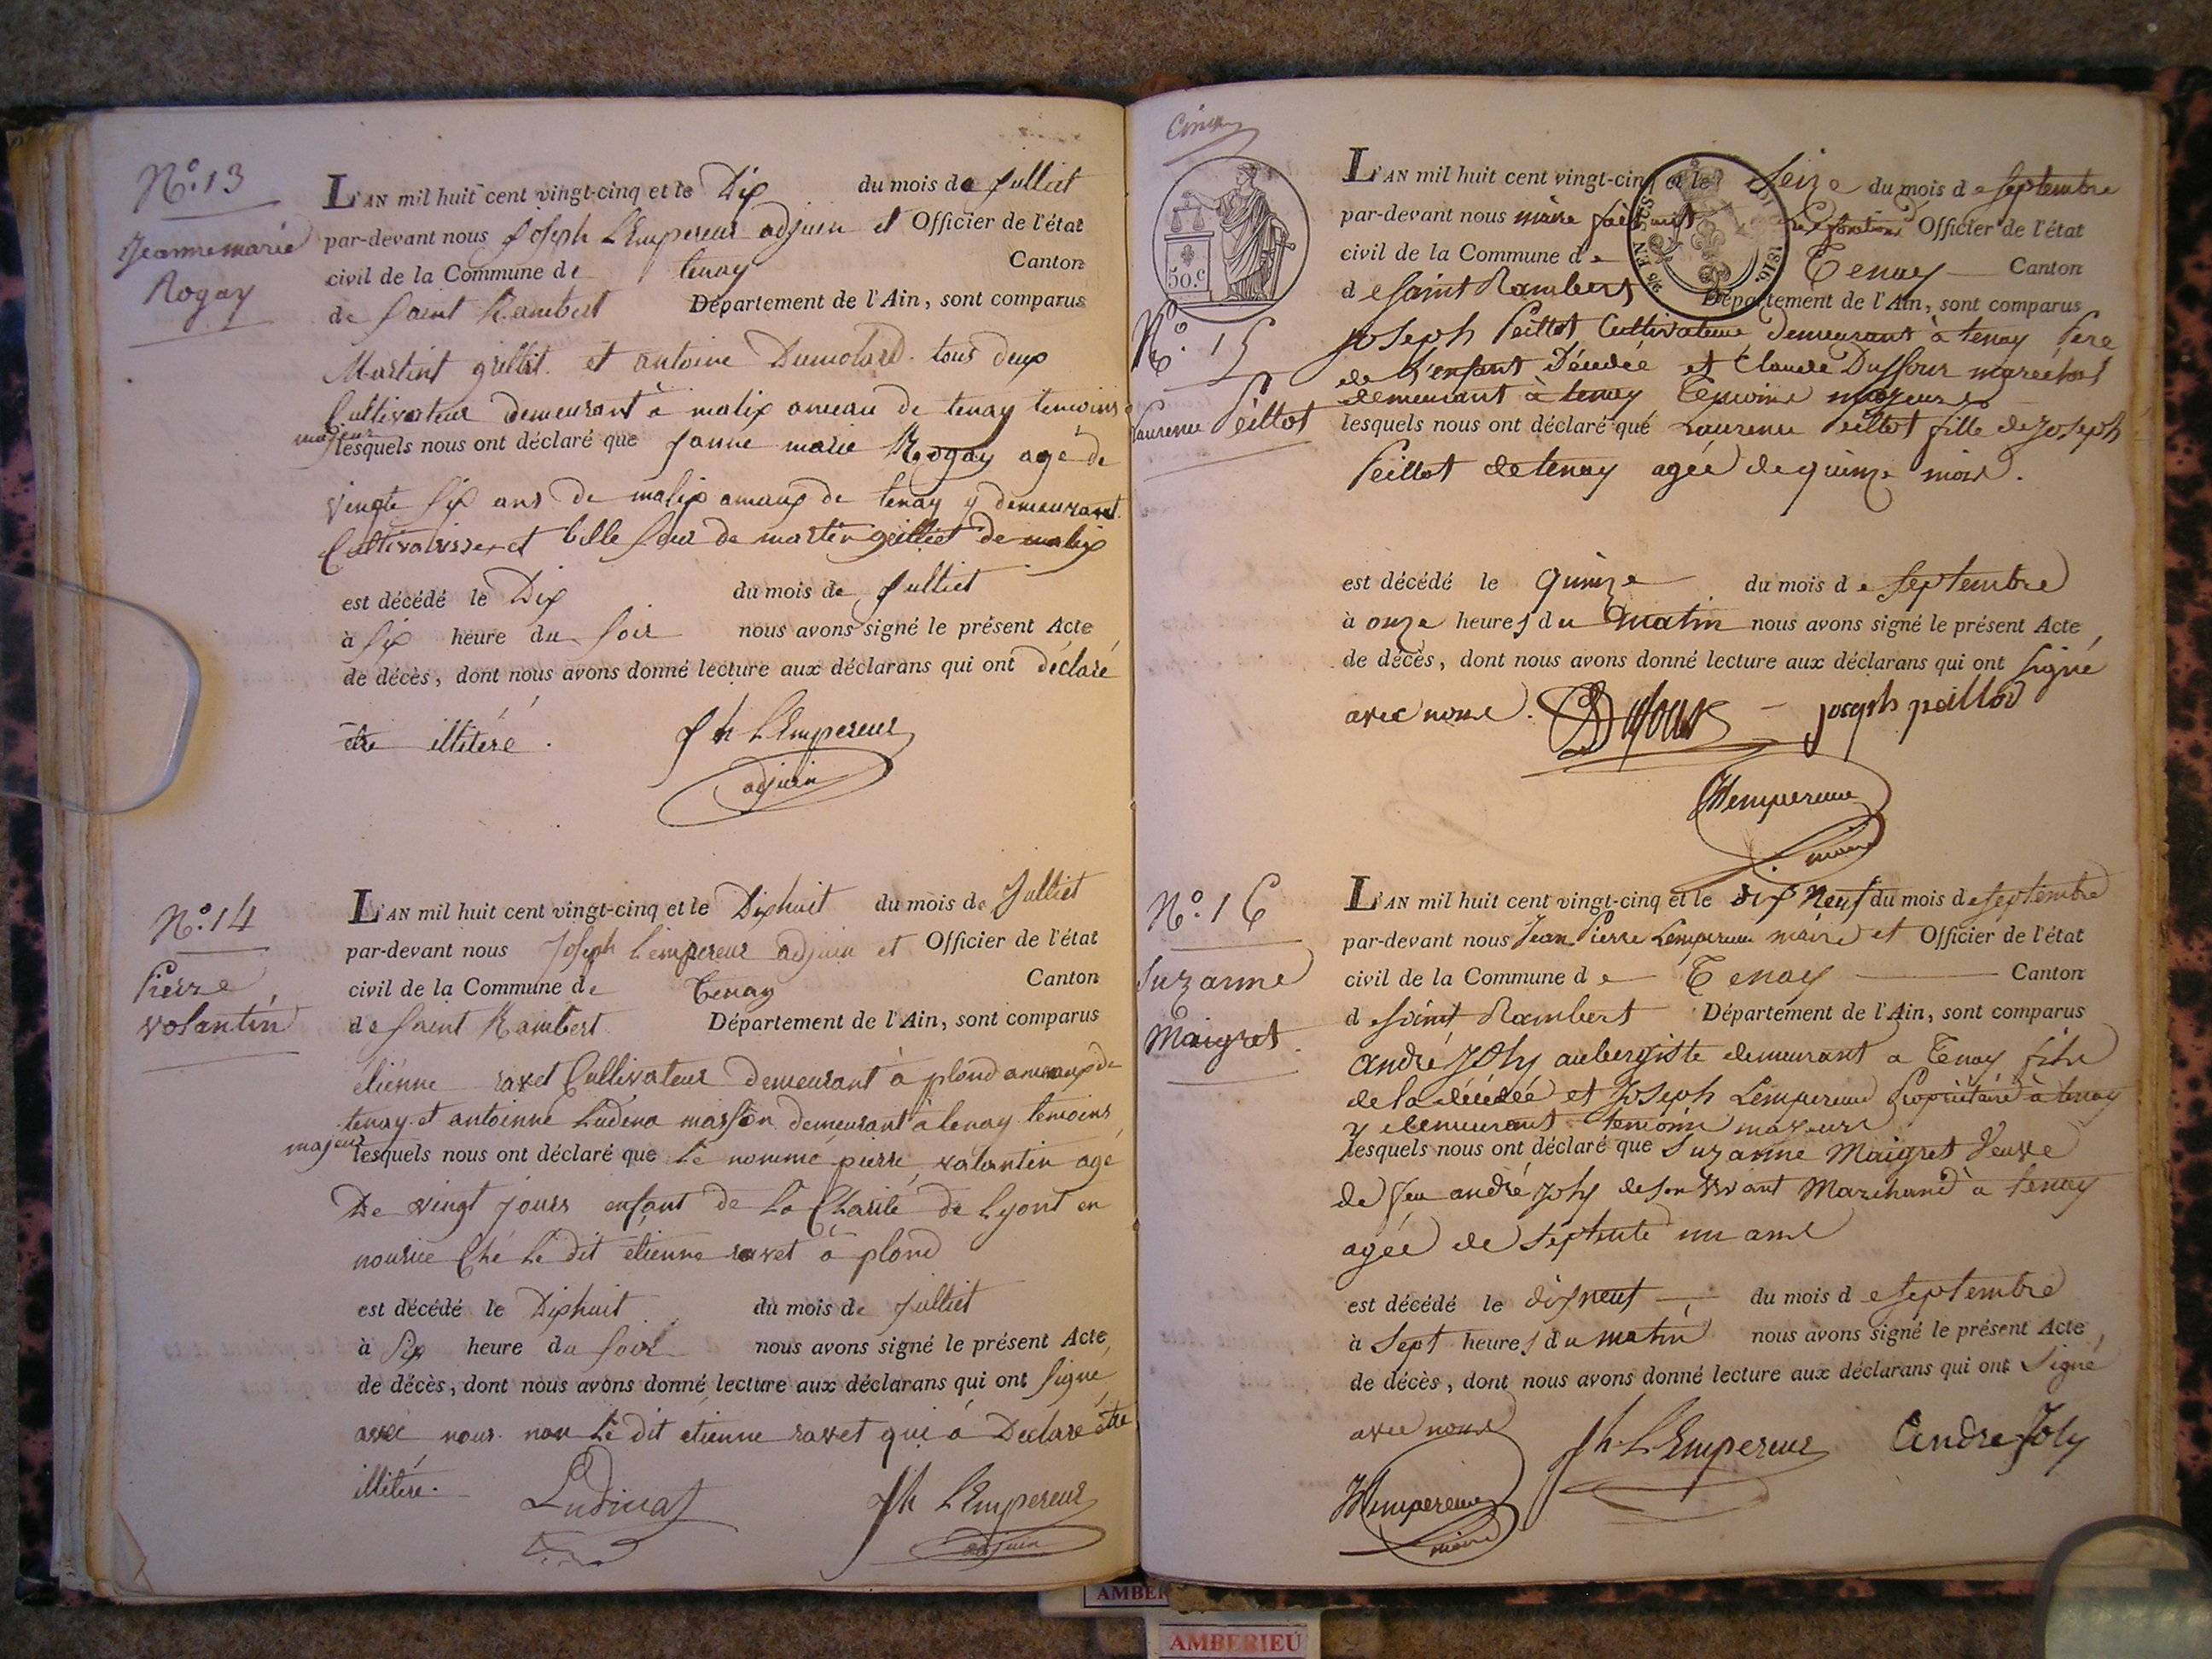 N.º 13
Jeanne marie
Rogay
L'AN mil huit cent vingt-cinq et le Dix du mois de Julliet
par-devant nous Joseph L'Empereur adjuin et Officier de l'état
civil de la Commune de tenay Canton
de Saint Rambert Département de l'Ain, sont comparus
Martint grilliet et antoine Dumolard tous deux
Cultivateur demeurant à malix ameau de tenay temoins
majeur lesquels nous ont déclaré que Janne marie Rogay agé de
vingte six ans de malix amaux de tenay y demeurant
Cultivatrisse et belle seur de martin grilliet de malix
est décédé le Dix du mois de Julliet
à six heure du soir nous avons signé le présent Acte
de décès, dont nous avons donné lecture aux déclarans qui ont déclaré
etre illiteré.
Jh L'Empereur
adjuin
N.º 14
Pierre
volantin
L'AN mil huit cent vingt-cinq et le Dixhuit du mois de Julliet
par-devant nous Joseph l'empereur adjuin et Officier de l'état
civil de la Commune de Tenay Canton
de Saint Rambert Département de l'Ain, sont comparus
etienne ravet Cultivateur demeurant à plond ameaux de
tenay et antoinne Ludena masson demeurant à tenay temoins
majeur lesquels nous ont déclaré que Le nommé pierre valantin agé
De vingt jours enfant de La Charité de Lyont en
nourice Ché Le dit etienne ravet à plond
est décédé le Dixhuit du mois de Julliet
à Six heure du Soir nous avons signé le présent Acte
de décès, dont nous avons donné lecture aux déclarans qui ont signé
avec nous non Le dit etienne ravet qui à Déclaré être
illiteré.
Ludinat
Jh L'Empereur
adjuin
50.c
1816
N.º 15
Laurence Peillot
L'AN mil huit cent vingt-cinq et le Seize du mois de Septembre
par-devant nous maire fonctions Officier de l'état
civil de la Commune de Tenay Canton
de Saint Rambert Département de l'Ain, sont comparus
Joseph Peillot Cultivateur demeurant à tenay Pere
de L'enfant Décédée et Claude Duffour maréchal
demeurant à tenay Temoins majeurs
lesquels nous ont déclaré que Laurence Peillot fille de Joseph
Peillot de tenay agée de quinze mois.
est décédé le quinze du mois de Septembre
à onze heures du matin nous avons signé le présent Acte
de décès, dont nous avons donné lecture aux déclarans qui ont signé
avec nous. Dufour joseph peillod
Lempereur
maire
N.º 16
Suzanne
Maigret
L'AN mil huit cent vingt-cinq et le dix neuf du mois de Septembre
par-devant nous Jean Pierre Lempereur maire et Officier de l'état
civil de la Commune de Tenay Canton
de Saint Rambert Département de l'Ain, sont comparus
andré Joly aubergiste demeurant a Tenay fils
de la décédée et Joseph Lempereur Propriétaire à tenay
y demeurant temoins majeurs
lesquels nous ont déclaré que Suzanne Maigret Veuve
de feu andré Joly de son vivant Marchand à tenay
agée de Septente un ans
est décédé le dix neuf du mois de Septembre
à Sept heures du matin nous avons signé le présent Acte
de décès, dont nous avons donné lecture aux déclarans qui ont Signé
avec nous Jh L'Empereur Andre Joly
Lempereur
maire
AMBERIEU